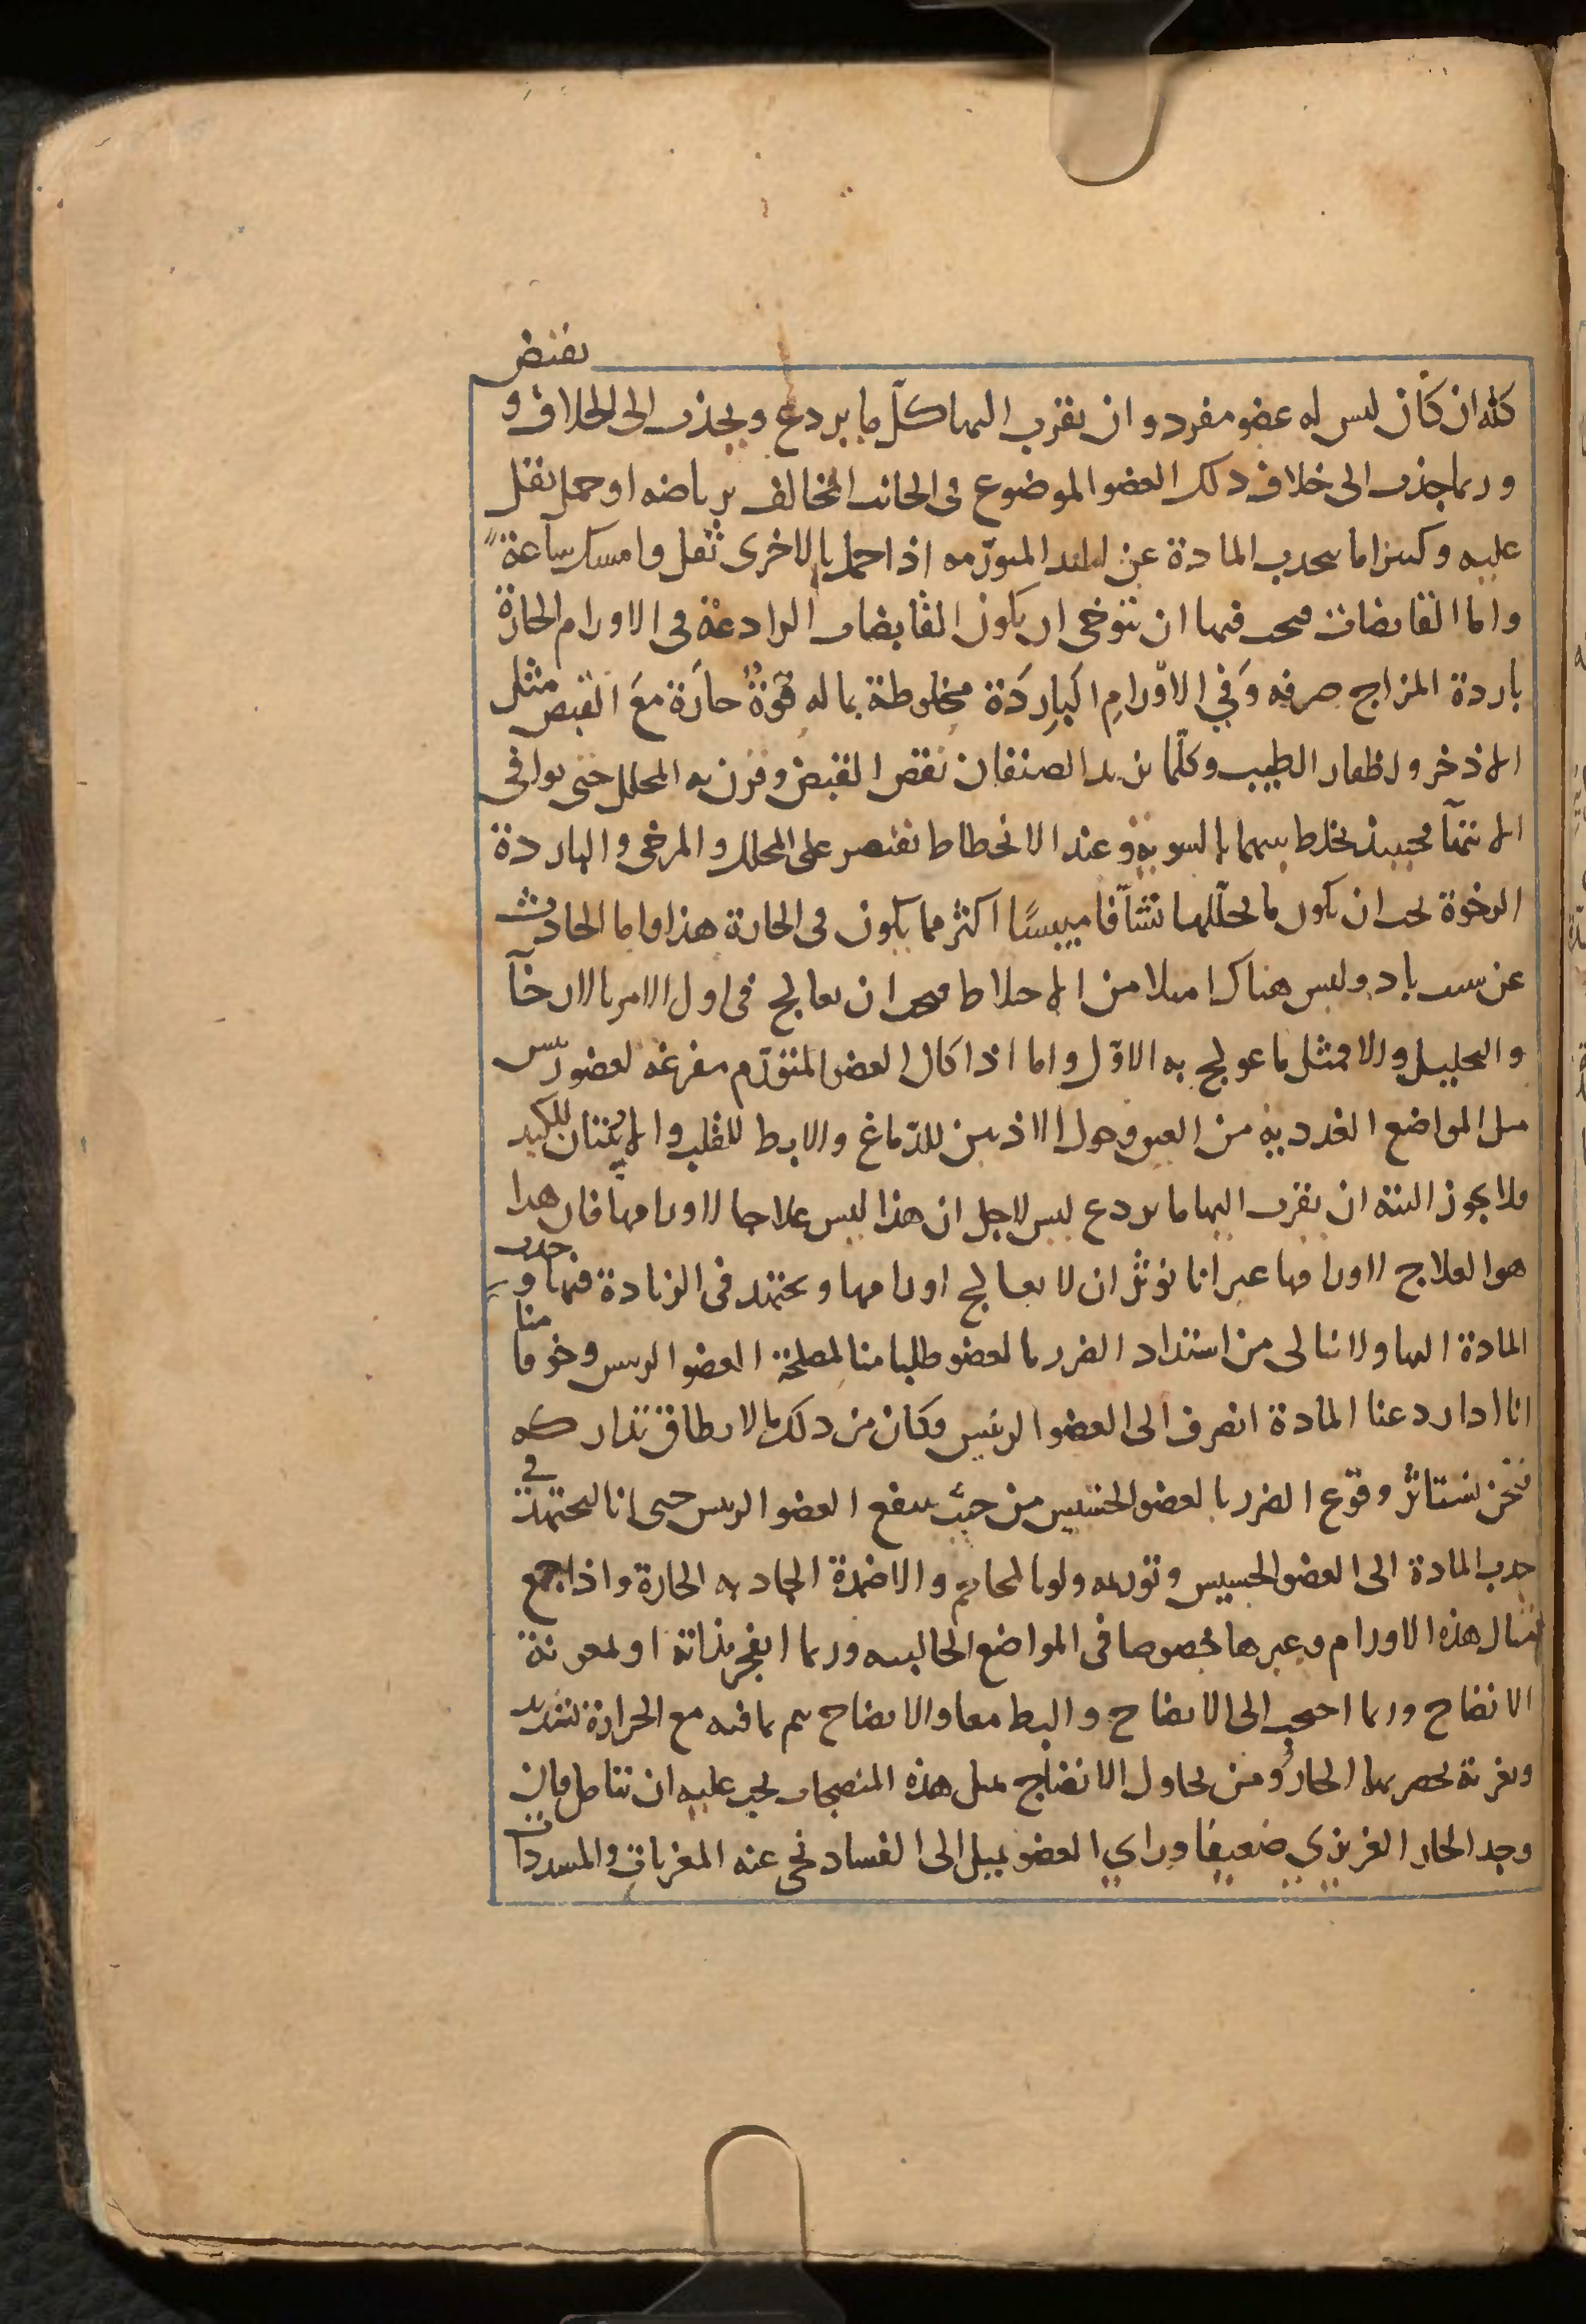 يقبض
كله ان كان ليس له عضو مفرد وان يقرب اليها كل ما يردع ويجذب الى الخلاف و
وربما جذب الى خلاف ذلك العضو الموضوع في الجانب المخالف برياضه او حمل ثقل
عليه وكثيرا ما يجذب المادة عن اليد المتورمه اذا حمل بالاخرى ثقل وامسك ساعة
واما القابضات فيجب فيها ان تتوخى ان يكون القابضات الرادعة في الاورام الحارة
باردة المزاج صرفه وَفي الاوْرامِ البارِدَة مخلوطة بما له قوّةٌ حارّة معَ القبض مثل
الاذخر واظفار الطيب وكلّما يزيد الصنفان نقص القبض وقرن به المحلل حتى يوافى
الانتهآ فحينيذ يخلط بينهما بالسويه وعند الانحطاط يقتصر على المحلل والمرخى والباردة
الرخوة يجب ان يكون ما يحلّلها نشّآفا ميبسًا اكثر مما يكون فى الحارة هذا واما الحادث
عن سبب باد وليس هناك امتلا من الاخلاط فيجب ان يعالج فى اول الامر بالارخآ
والتحليل والا فمثل ما عولج به الاوّل واما اذا كان العضو المتورّم مفرغه لعضو رئيس
مثل المواضع الغدديه من العنق وحول الاذنين للدّماغ والابط للقلب والاربيتان للكبد
فلا يجوز البتة ان يقرب اليها ما يردع ليس لاجل ان هذا ليس علاجا لاورامها فان هذا
هو العلاج لاورامها غير انا نوثر ان لا يعالج اورامها ويجتهد فى الزيادة فيها و جذب
المادة اليها ولا نبالى من اشتداد الضرر بالعضو طلبا منا لمصلحة العضو الرييس وخوفا منا
انا اذا ردعنا المادة انصرف الى العضو الرئيس وكان من ذلك ما لا يطاق تداركه
فنحن نستاثر وقوع الضرر بالعضو الخسيس من حيث ينفع العضو الرييس حتى انا لنجتهد في
جذب المادة الى العضو الخسيس وتوريمه ولو بالمحاجم والاضمدة الجاذبه الحارة واذا جمع
امثال هذه الاورام وغيرها خصوصا فى المواضع الخاليه وربما انفجر بذاته او لمعونة
الانضاج وربما احتيج الى الانضاج والبط معا والانضاج يتم بما فيه مع الحرارة تسديد
وتغرية يحصر بهما الحارّ ومن يحاول الانضاج بمثل هذه المنضجات يجب عليه ان يتامل فان
وجد الحار الغريزي ضعيفا وراي العضو يميل الى الفساد نحى عنه المغريات والمسددات